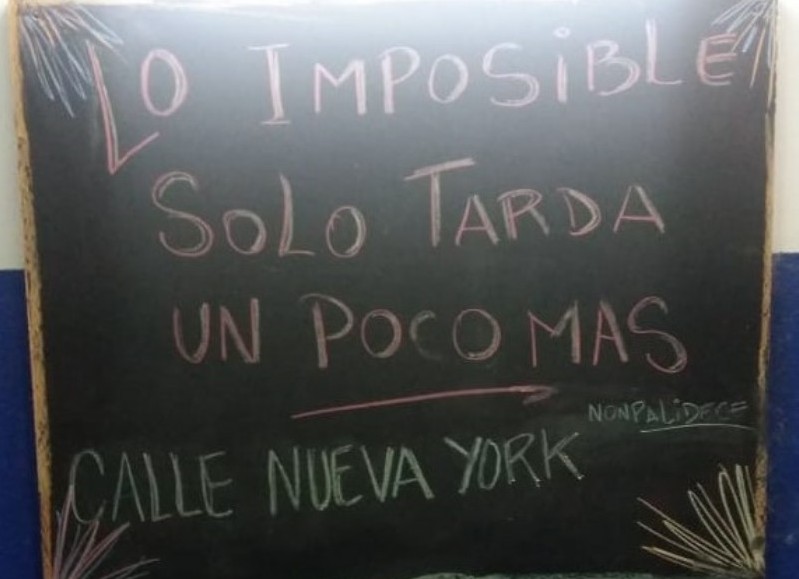 LO IMPOSiBLE
SOLO TARDA
UN POCO MAS
NONPALiDECE
CALLE NUEVA YORK